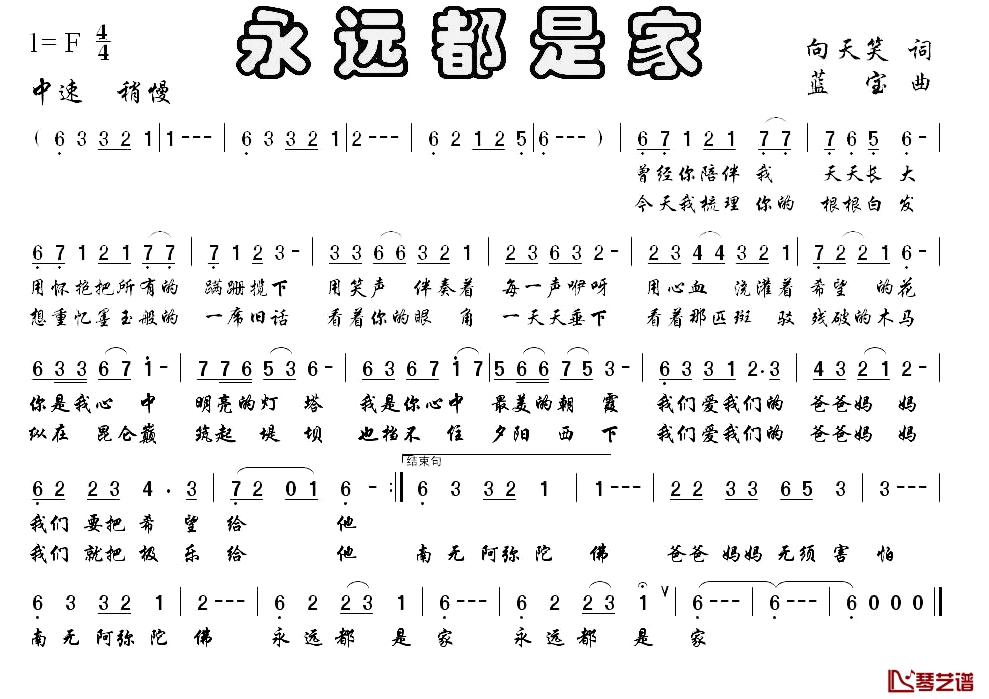 1= F 4/4 永远都是家 向天笑 词
中速 稍慢 蓝宝 曲
( 6 3 3 2 1 | 1 - - - | 6 3 3 2 1 | 2 - - - | 6 2 1 2 5 | 6 - - - ) | 6 7 1 2 1 7 7 | 7 6 5 6 - |
曾经你陪伴我 天天长大
今天我梳理你的 根根白发
6 7 1 2 1 7 7 | 7 1 2 3 - | 3 3 6 6 3 2 1 | 2 3 6 3 2 - | 2 3 4 4 3 2 1 | 7 2 2 1 6 - |
用怀抱把所有的 蹒跚揽下 用笑声 伴奏着 每一声咿呀 用心血 浇灌着 希望 的花
想重忆墨玉般的 一席旧话 看着你的眼 角 一天天垂下 看着那匹斑 驳 残破的木马
6 3 3 6 7 1 - | 7 7 6 5 3 6 - | 6 3 6 7 1 7 | 5 6 6 7 5 - | 6 3 3 1 2 · 3 | 4 3 2 1 2 - |
你是我心 中 明亮的灯 塔 我是你心中 最美的朝 霞 我们爱我们的 爸爸妈 妈
纵在 昆仑巅 筑起 堤 坝 也挡不 住 夕阳 西 下 我们爱我们的 爸爸妈 妈
6 2 2 3 4 · 3 | 7 2 0 1 6 - :| 结束句 6 3 3 2 1 | 1 - - - | 2 2 3 3 6 5 3 | 3 - - - |
我们 要把 希 望 给 他
我们 就把 极 乐 给 他 南 无 阿弥 陀 佛 爸爸 妈妈 无须 害 怕
6 3 3 2 1 | 2 - - - | 6 2 2 3 1 | 6 - - - | 6 2 2 3 1 V | 6 - - - | 6 - - - | 6 0 0 0 ||
南 无 阿弥 陀 佛 永 远 都 是 家 永 远 都 是 家
琴艺谱